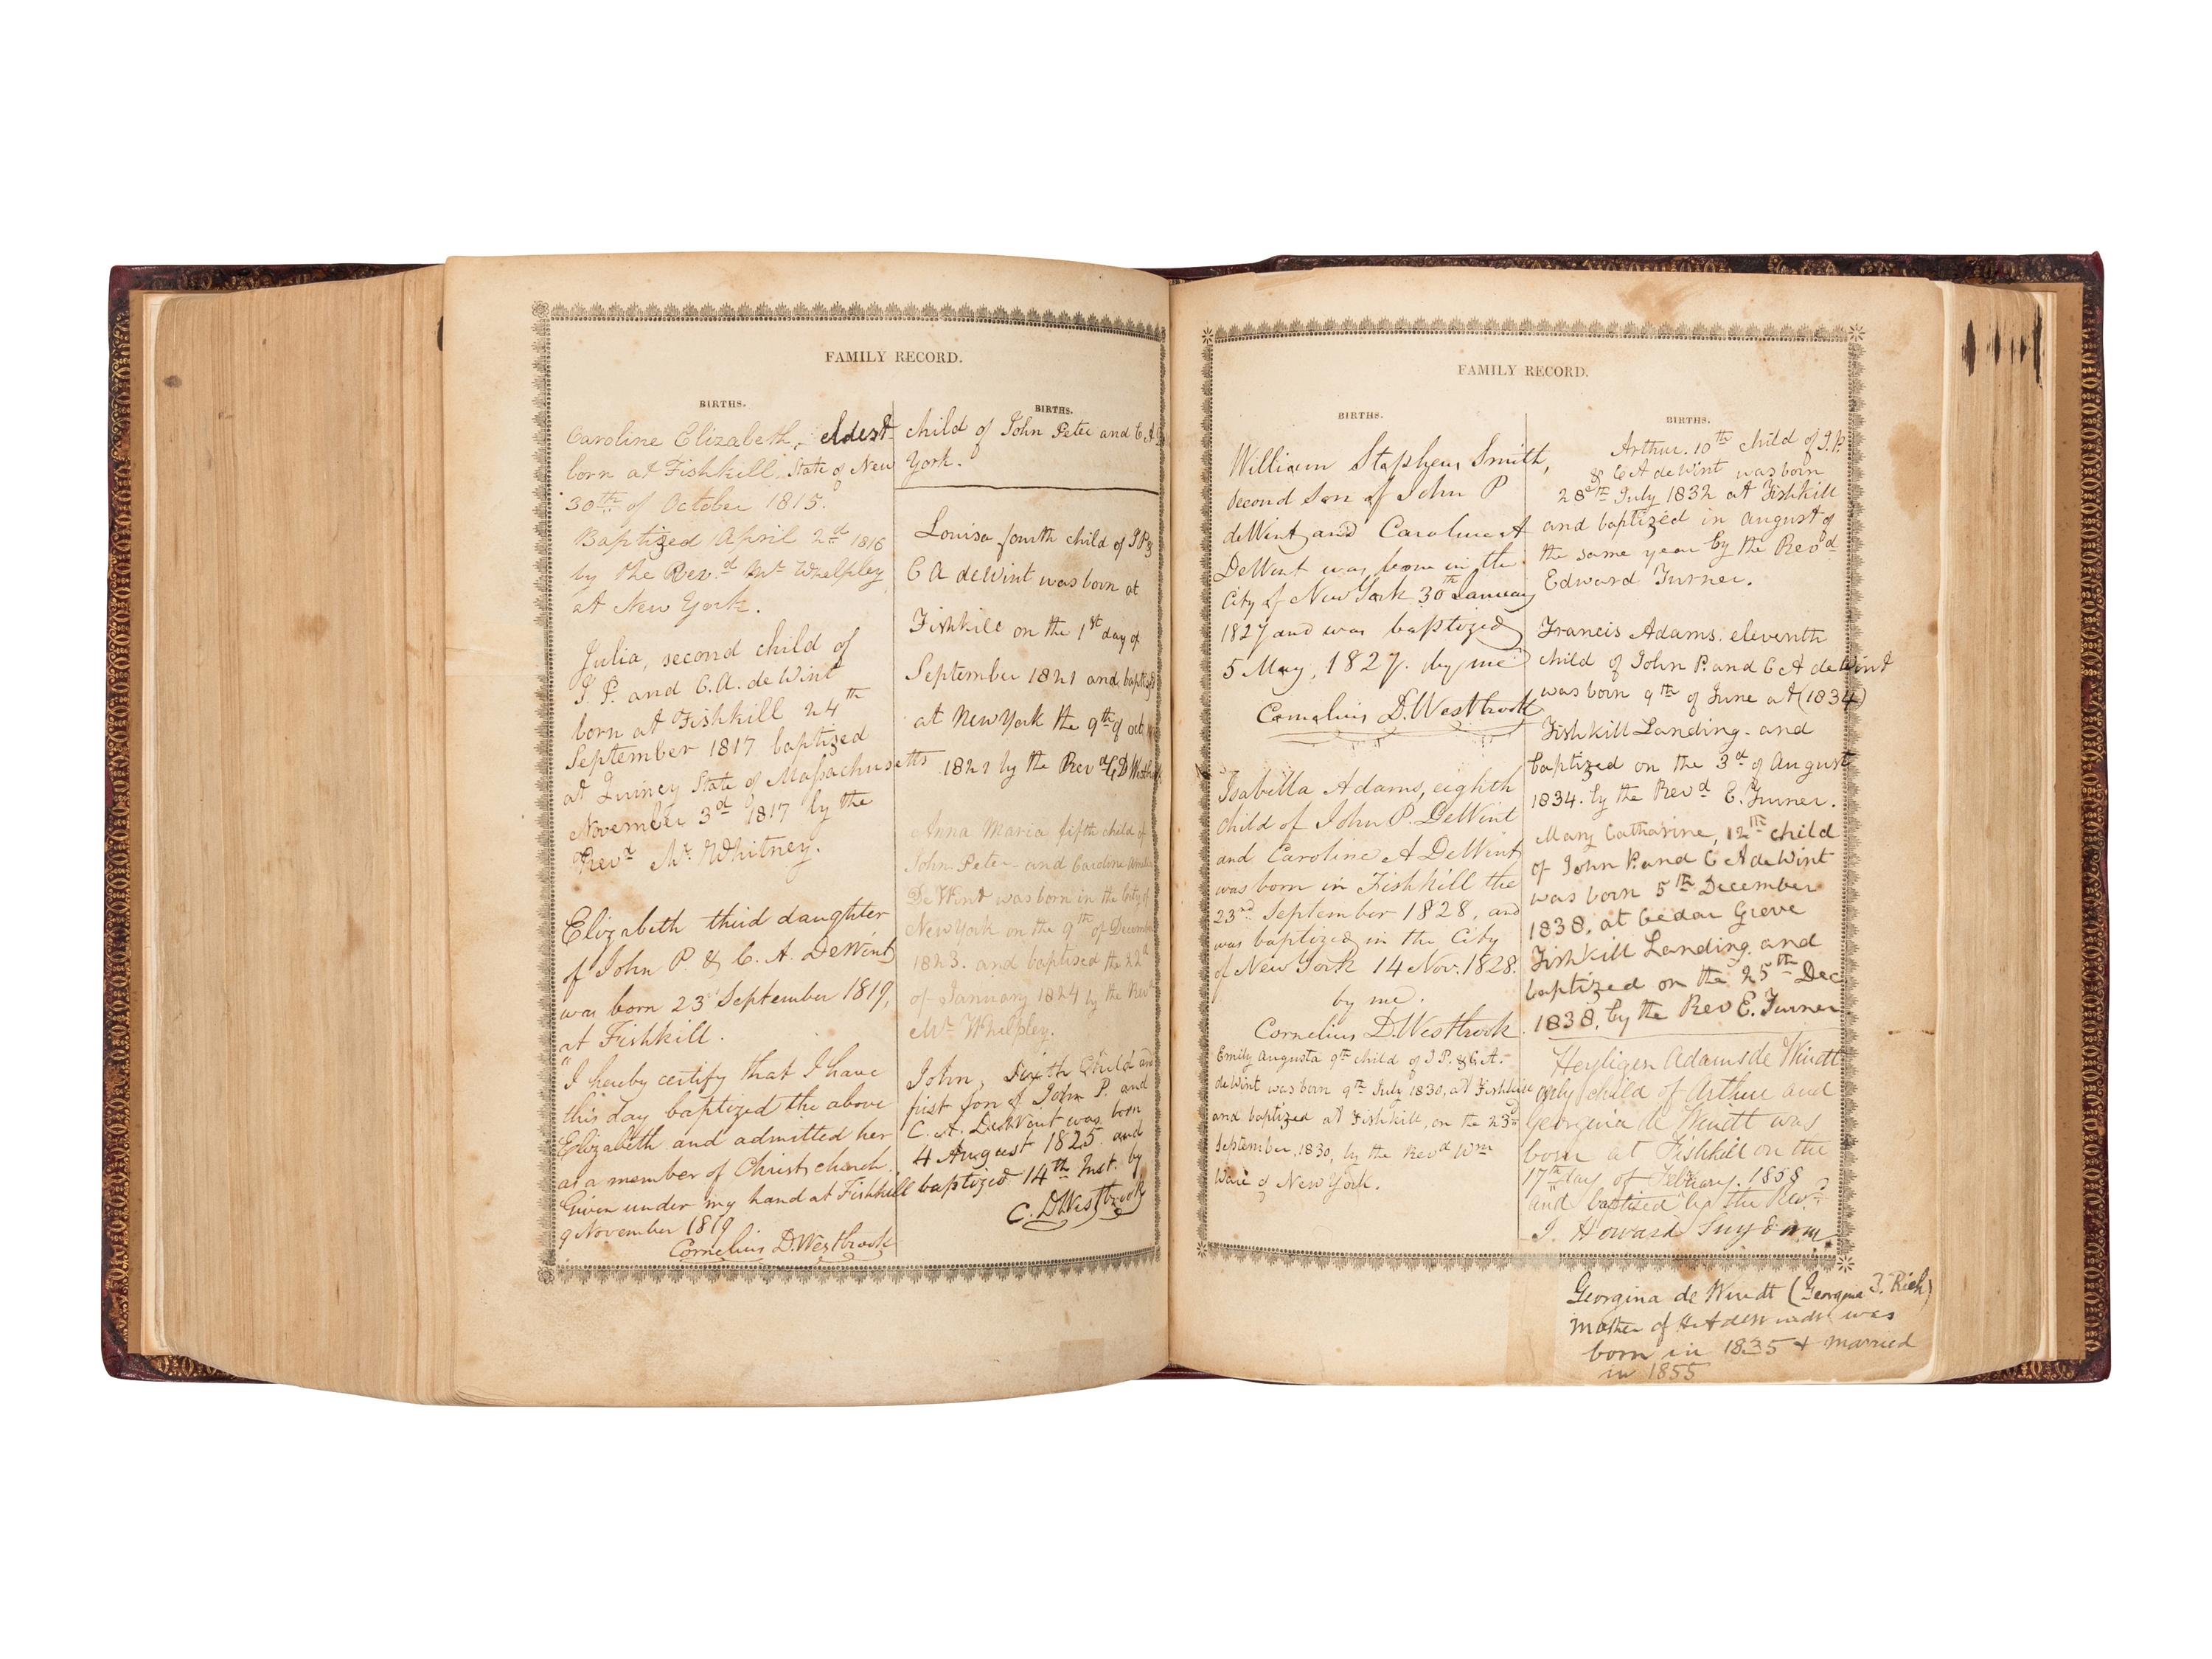 FAMILY RECORD.
BIRTHS.
Caroline Elizabeth, eldest
born at Fishkill State of New
30th of October 1815.
Baptized April 2d 1816
by the Revd Mr Whelpley
at New York.
Julia, second child of
J. P. and C. A. de Wint
born at Fishkill 24th
September 1817 baptized
at Quincy State of Massachusetts
November 3d 1817 by the
Revd Mr Whitney.
Elizabeth third daughter
of John P. & C. A. DeWint
was born 23 September 1819,
at Fishkill.
"I hereby certify that I have
this day baptized the above
Elizabeth and admitted her
as a member of Christs church.
Given under my hand at Fishkill
9 November 1819
Cornelius D. Westbrook
BIRTHS.
child of John Peter and C A
York.
Louisa fourth child of J P &
C A deWint was born at
Fishkill on the 1st day of
September 1821 and
at New York the 9th of oct
1821 by the Revd C D
Anna Maria fifth child of
John Peter and Caroline
DeWint was born in the City of
New York on the 9th of
1823. and baptised the 22d
of January 1824 by the Revd
Mr Whelpley.
John, Sixth Child and
first son of John P. and
C. A. DeWint was born
4 August 1825 and
baptized 14th Inst. by
C. D Westbrook
FAMILY RECORD.
BIRTHS.
William Stephen Smith,
second son of John P
deWint and Caroline A
DeWint was born in the
City of New York 30th January
1827 and was baptized
5 May, 1827. by me
Cornelius D. Westbrook
Isabella Adams, eighth
child of John P. DeWint
and Caroline A DeWint
was born in Fishkill the
23nd September 1828, and
was baptized in the City
of New York 14 Nov. 1828.
by me.
Cornelius D. Westbrook
Emily Augusta 9th child of J P. & C. A.
deWint was born 9th July 1830, at Fishkill
and baptized at Fishkill, on the 23d
September, 1830, by the Revd Wm
Ware of New York.
BIRTHS.
Arthur. 10th child of J. P.
& C A deWint was born
28th July 1832 at Fishkill
and baptized in august of
the same year by the Revd
Edward Turner.
Francis Adams. eleventh
child of John P. and C A de Wint
was born 9th of June at (1834)
Fishkill Landing. and
baptized on the 3d of August
1834. by the Revd E. Turner.
Mary Catharine, 12th child
of John P. and C A de Wint
was born 5th December
1838. at Cedar Grove
Fishkill Landing. and
baptized on the 25th Dec
1838, by the Rev E. Turner
Heyligen Adams de Windt
only child of Arthur and
Georgina de Windt was
born at Fishkill on the
17th day of February. 1858
and baptized by the Revd
J. Howard Suydam.
Georgina de Windt (Georgina Rich)
mother of was
born in 1835 + married
in 1855